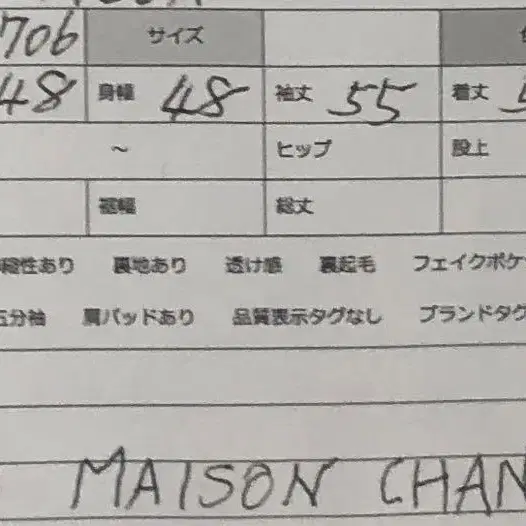 706 サイズ
48 身幅 48 袖丈 55 着丈
~ ヒップ 股上
裾幅 総丈
縮性あり 裏地あり 透け感 裏起毛 フェイクポケ
五分袖 肩パッドあり 品質表示タグなし ブランドタグ
MAISON CHAN